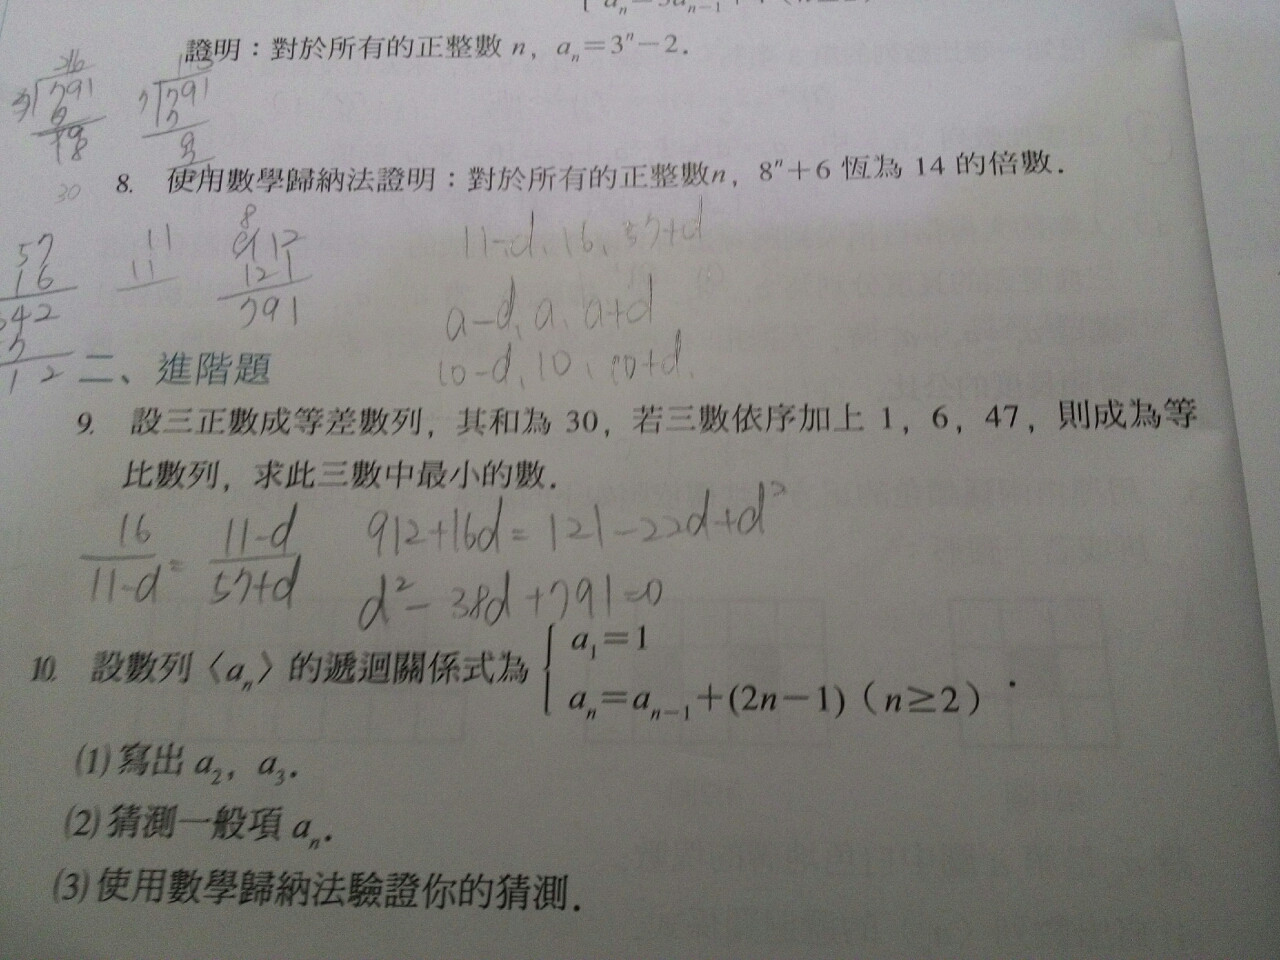 證明：對於所有的正整數 n，aₙ=3ⁿ−2．
791
791
8. 使用數學歸納法證明：對於所有的正整數n，8ⁿ+6 恆為 14 的倍數．
30
57
16
11
11
8
912
121
791
11-d, 16, 57+d
a-d, a, a+d
10-d, 10, 10+d,
二、進階題
9. 設三正數成等差數列，其和為 30，若三數依序加上 1，6，47，則成為等
比數列，求此三數中最小的數．
16/(11-d) = (11-d)/(57+d)
912+16d = 121-22d+d²
d²-38d+791=0
10. 設數列〈aₙ〉的遞迴關係式為 { a₁=1
aₙ=aₙ₋₁+(2n−1)（n≥2）．
(1) 寫出 a₂，a₃．
(2) 猜測一般項 aₙ．
(3) 使用數學歸納法驗證你的猜測．